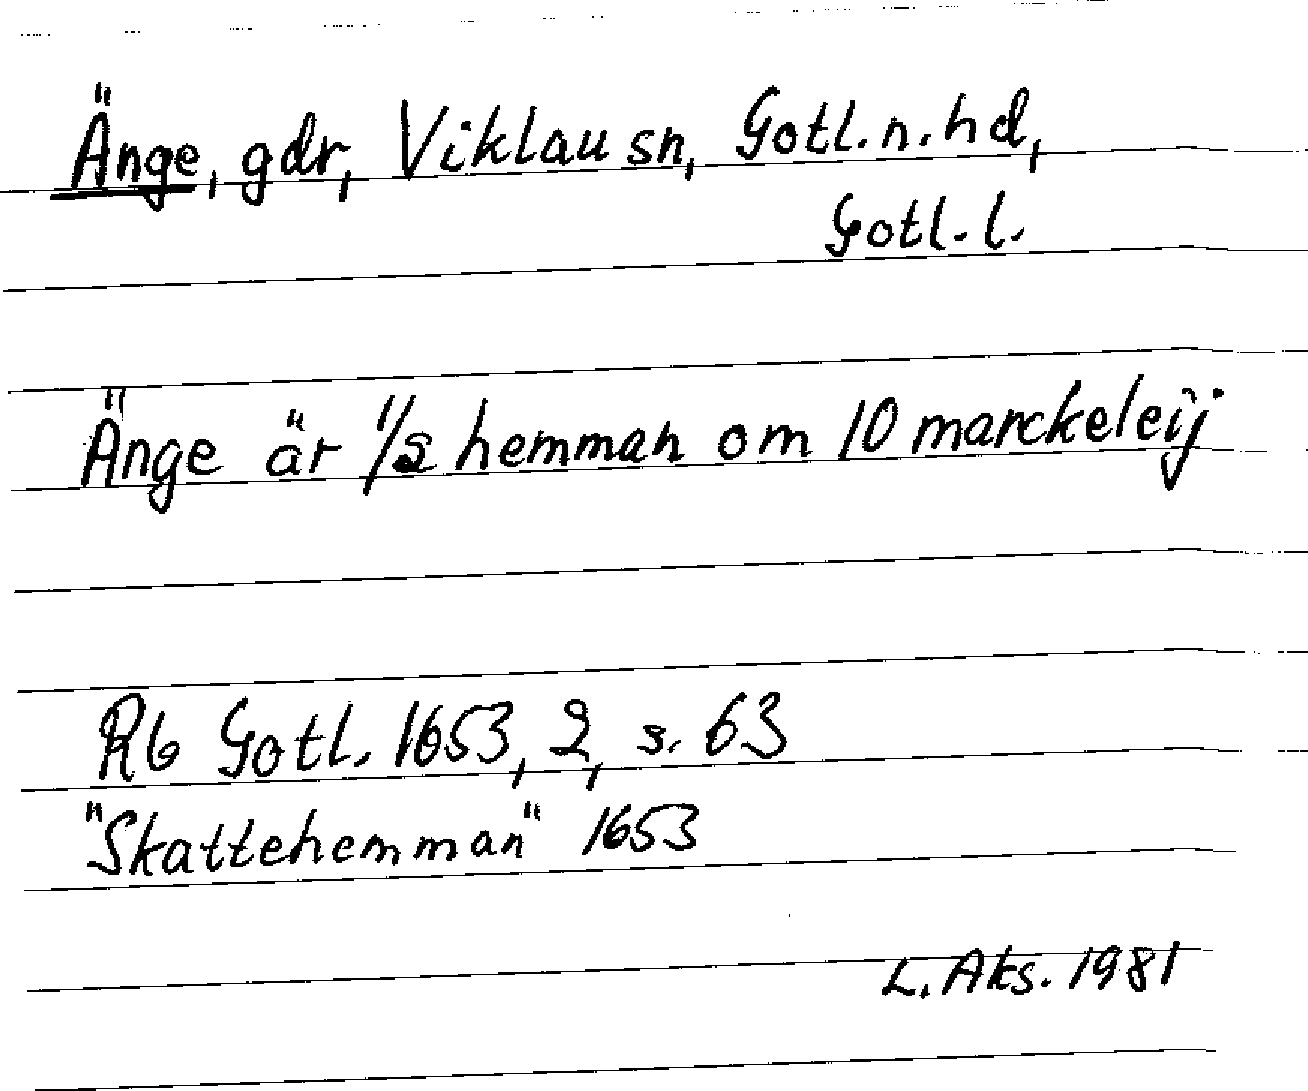 Änge, gdr, Viklau sn, Gotl. n. hd,
Gotl. l.
Änge är 1/2 hemman om 10 marckeleij
Rb Gotl. 1653, 2, s. 63
"Skattehemman" 1653
L. Aks. 1981